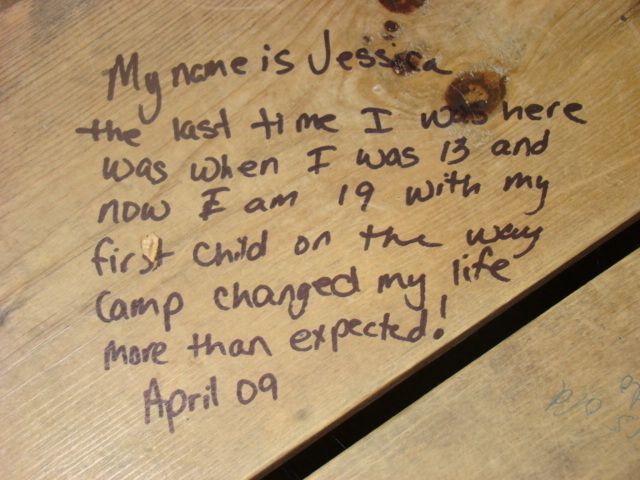 My name is Jessica
the last time I was here
was when I was 13 and
now I am 19 with my
first child on the way
Camp changed my life
more than expected!
April 09